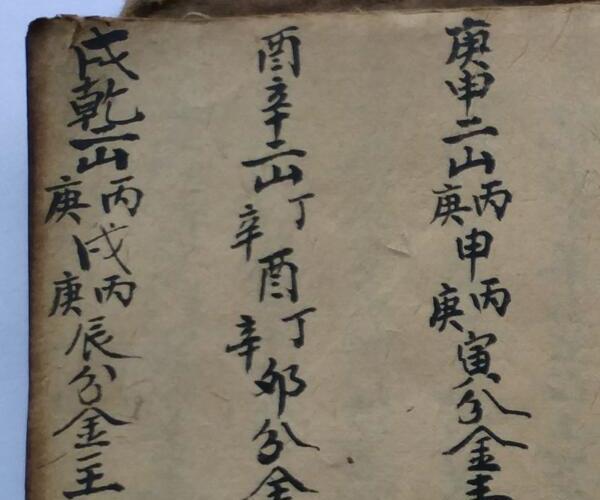 庚申二山丙庚申丙庚寅分金主
酉辛二山丁辛酉丁辛卯分金
戌乾二山丙庚戌丙庚辰分金主